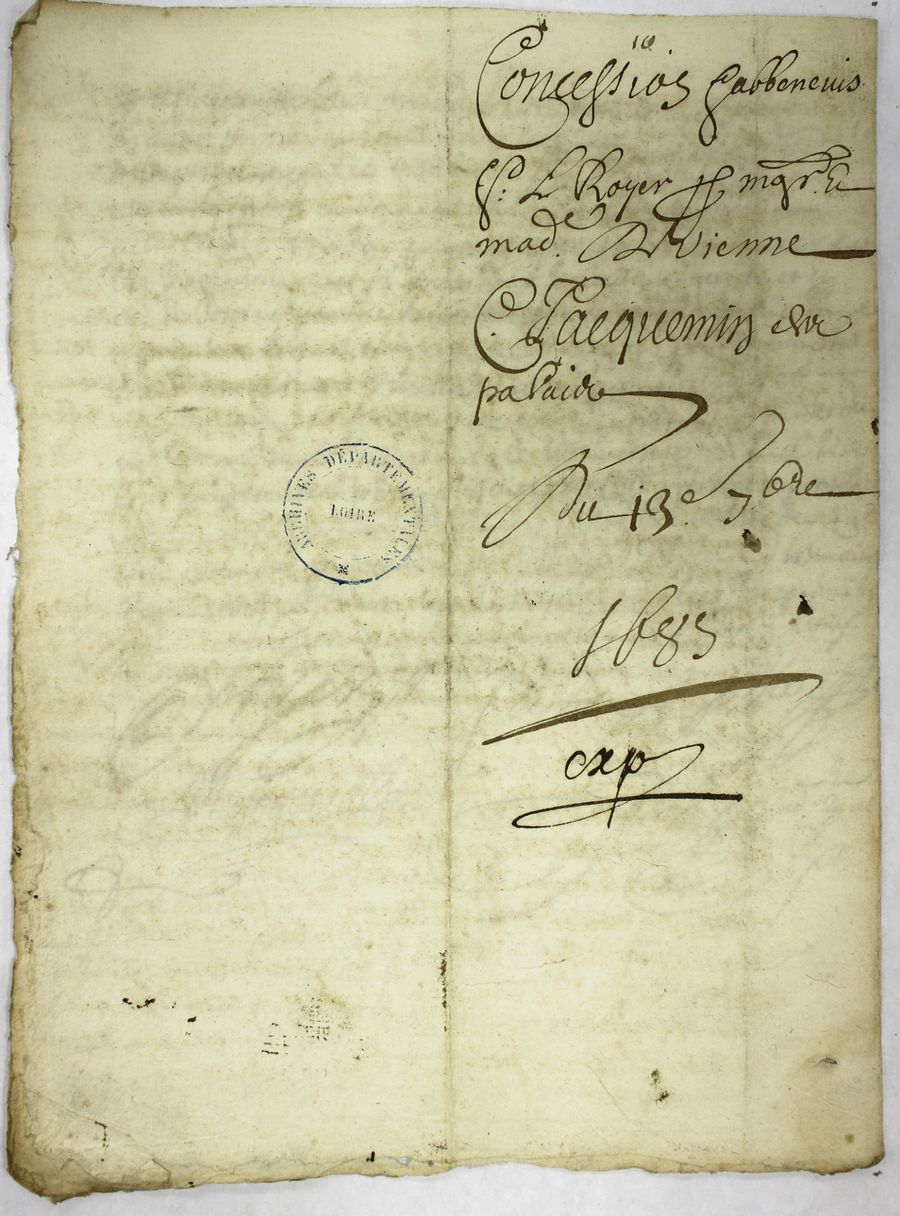 10
Concession d'abbenevis
Sr. Le Royer pr mgr. &
made. De Vienne
C. Jacquemin de la
palaide
Du 13e 7bre
1683
exp
ARCHIVES DÉPARTEMENTALES
LOIRE